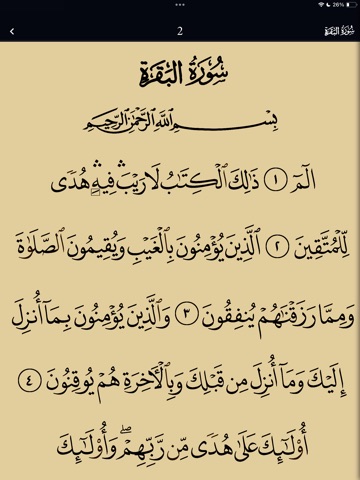 26%
2
سُورَةُ البَقَرَةِ
سُورَةُ البَقَرَةِ
بِسْمِ اللَّهِ الرَّحْمَٰنِ الرَّحِيمِ
الٓمٓ ١ ذَٰلِكَ ٱلْكِتَٰبُ لَا رَيْبَ ۛ فِيهِ ۛ هُدًى
لِّلْمُتَّقِينَ ٢ ٱلَّذِينَ يُؤْمِنُونَ بِٱلْغَيْبِ وَيُقِيمُونَ ٱلصَّلَوٰةَ
وَمِمَّا رَزَقْنَٰهُمْ يُنفِقُونَ ٣ وَٱلَّذِينَ يُؤْمِنُونَ بِمَآ أُنزِلَ
إِلَيْكَ وَمَآ أُنزِلَ مِن قَبْلِكَ وَبِٱلْأَخِرَةِ هُمْ يُوقِنُونَ ٤
أُو۟لَٰٓئِكَ عَلَىٰ هُدًى مِّن رَّبِّهِمْ ۖ وَأُو۟لَٰٓئِكَ